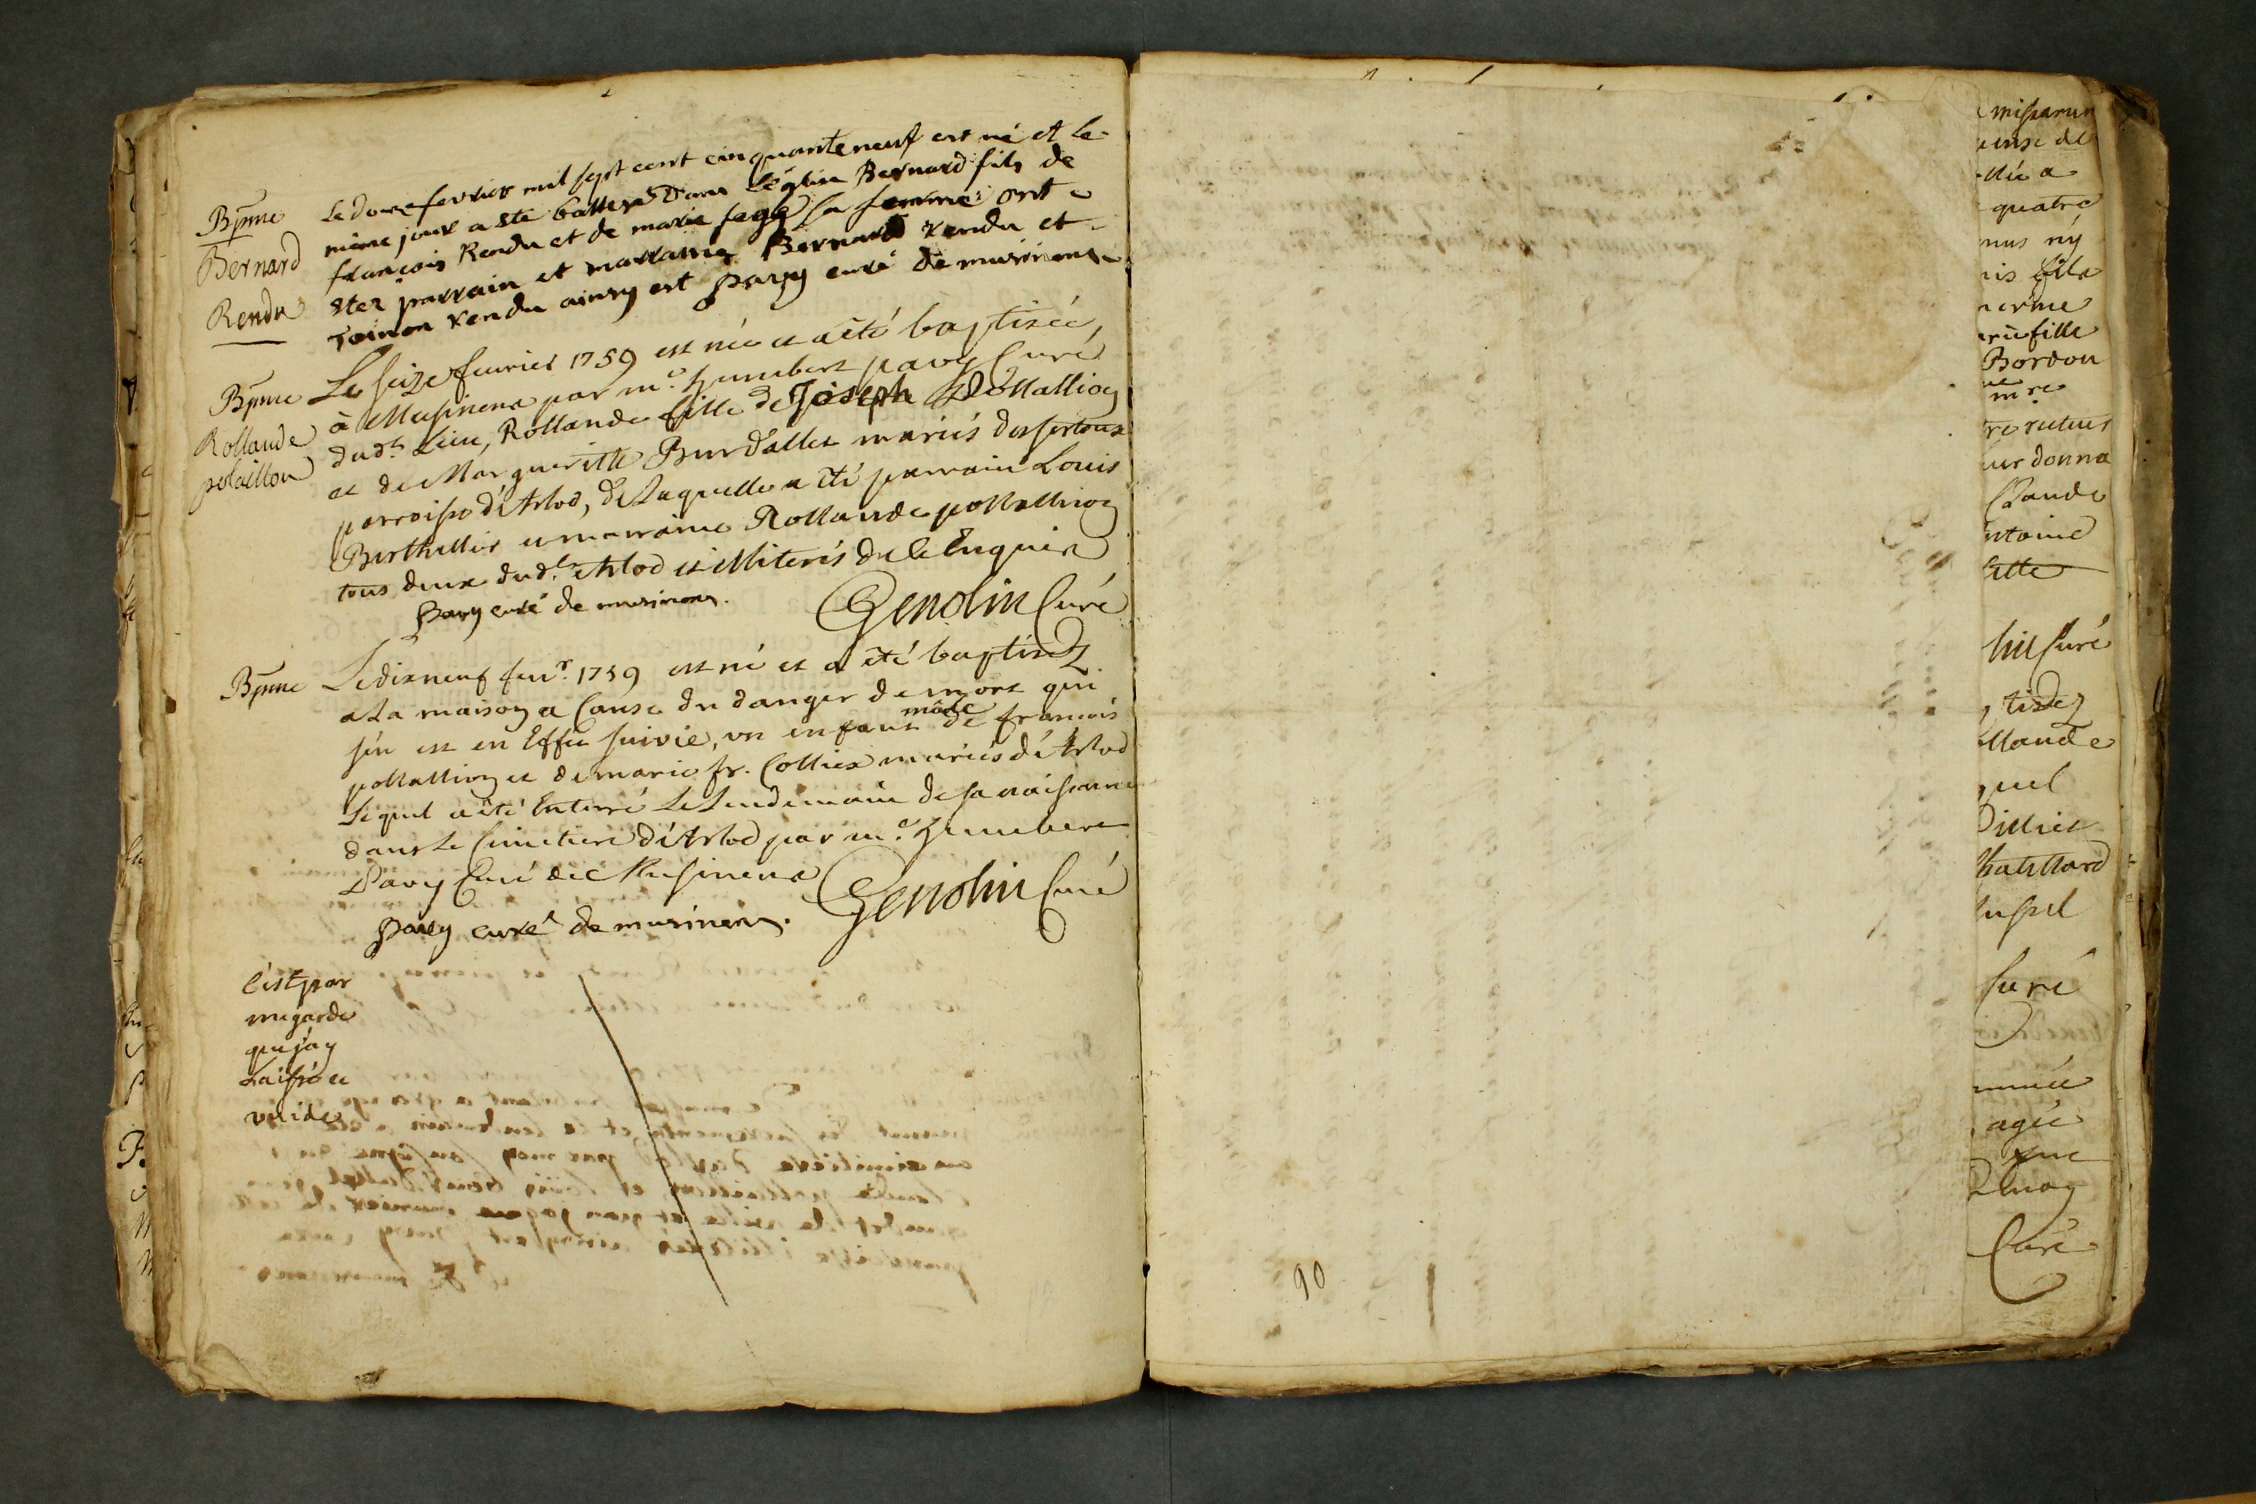 Bpme
Bernard
Rendu
Le douze fevrier mil sept cent cinquante neuf est né et le
même jour a ste battisé Dans L'église Bernard fils de
françois Rendu et de marie sage sa femme ont
stez parrain et marraine Bernard rendu et
Toinon rendu ainsy est pavy curé de musinens
Bpme
Rollande
polaillon
Le seize feurier 1759 est née et a été baptisée,
à Musinens par mre. humbert pavy Curé
dudt. Lieu, Rollande fille de Joseph Pollallion
et de Margueritte Burdallet mariés
parroisse d'Arlod, de Laquelle a été parrain Louis
Berthellier et marraine Rollande pollallion
tous deux dudt. Arlod et illiterés de ce Enquis
pavy curé de musinens. Genolin Curé
Bpme
Le dixneuf feur. 1759 est né et a été baptisé
a La maison a Cause du danger de mort qui
s'én est en Effet suivie, un enfant mâle de francois
pollallion et de marie fr. Collier mariés d'Arlod
Lequel a été Enterré Le Lendemain de sa naissance
dans Le Cimetiere d'Arlod par me. humbert
Pavy Curé de Musinens Genolin Curé
pavy curé de musinens.
C'est par
megarde
que j'ay
Laissé ce
vuide
90
quatre
fille
Bordon
donna
Claude
Curé
quel
Curé
agée
Curé